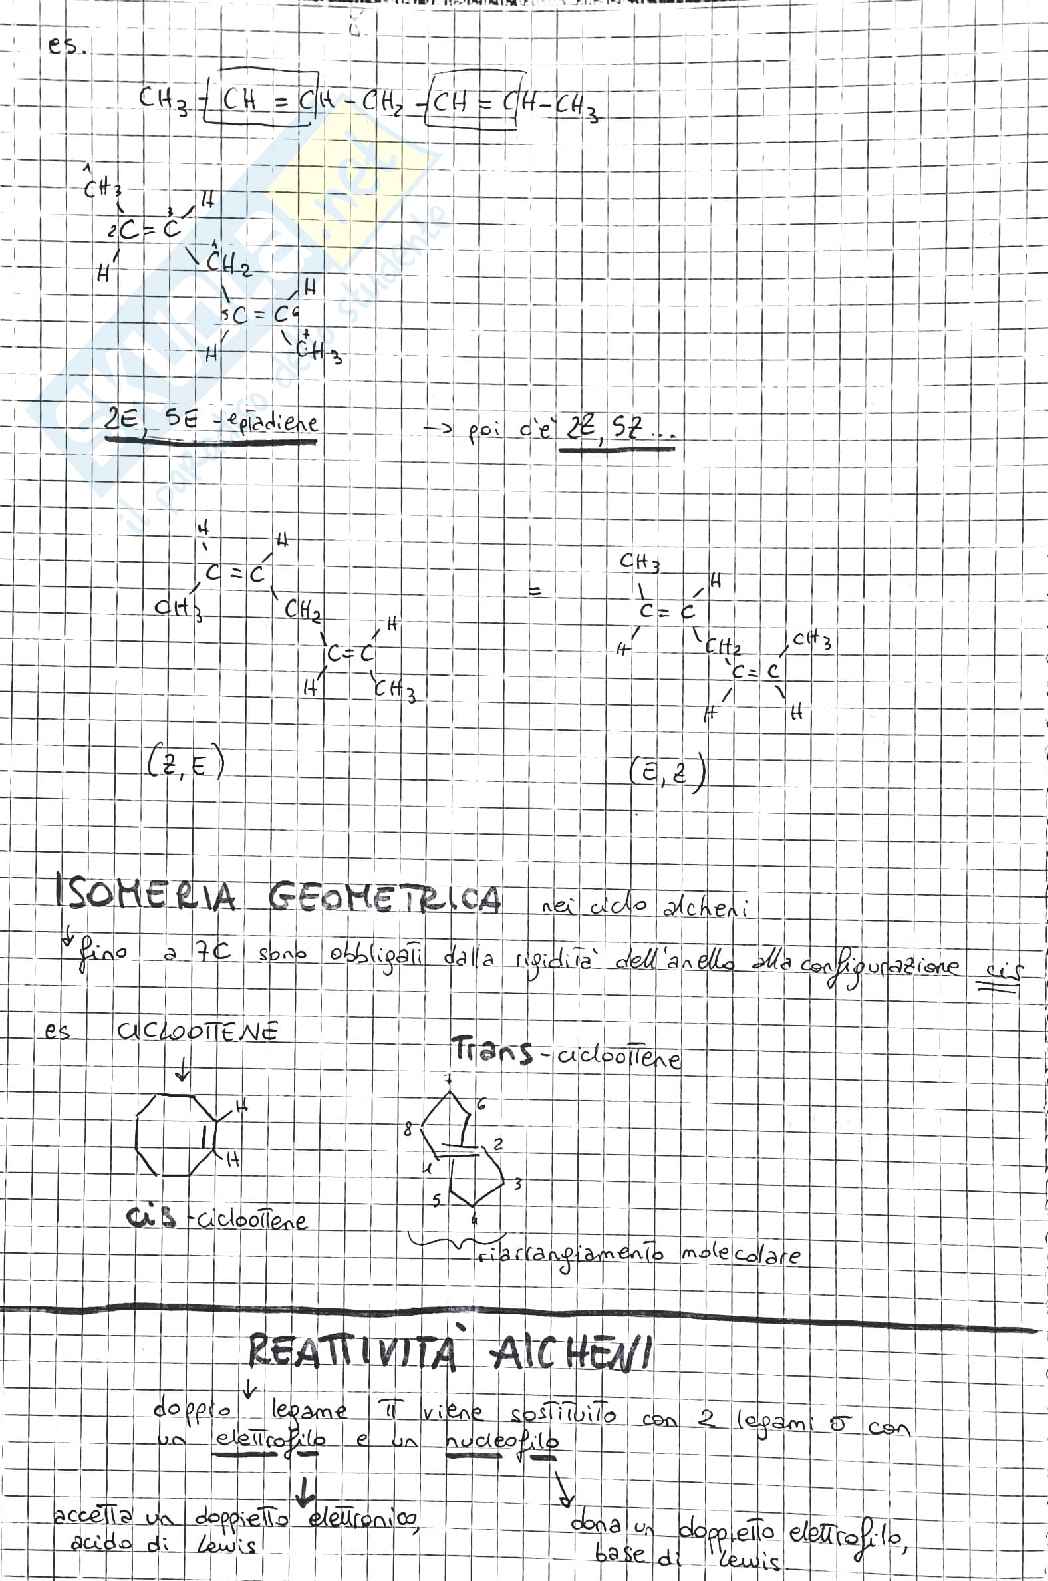 es.
CH3 - CH = CH - CH2 - CH = CH - CH3
1CH3 H
2C = C3
H 4CH2
H
5C = C6
H CH3
2E, 5E - eptadiene → poi c'è 2Z, 5Z...
H H
C = C
CH3 CH2
H
C = C
H CH3
(Z, E)
=
CH3 H
C = C
H CH2 CH3
C = C
H H
(E, Z)
ISOMERIA GEOMETRICA nei ciclo alcheni
↓ fino a 7C sono obbligati dalla rigidità dell'anello alla configurazione cis
es CICLOOTTENE
H
H
cis-cicloottene
Trans-cicloottene
6
8
2
3
5
4
riarrangiamento molecolare
REATTIVITÀ AlCHENI
doppio legame π viene sostituito con 2 legami σ con
un elettrofilo e un nucleofilo
accetta un doppietto elettronico,
acido di Lewis
dona un doppietto elettrofilo,
base di Lewis